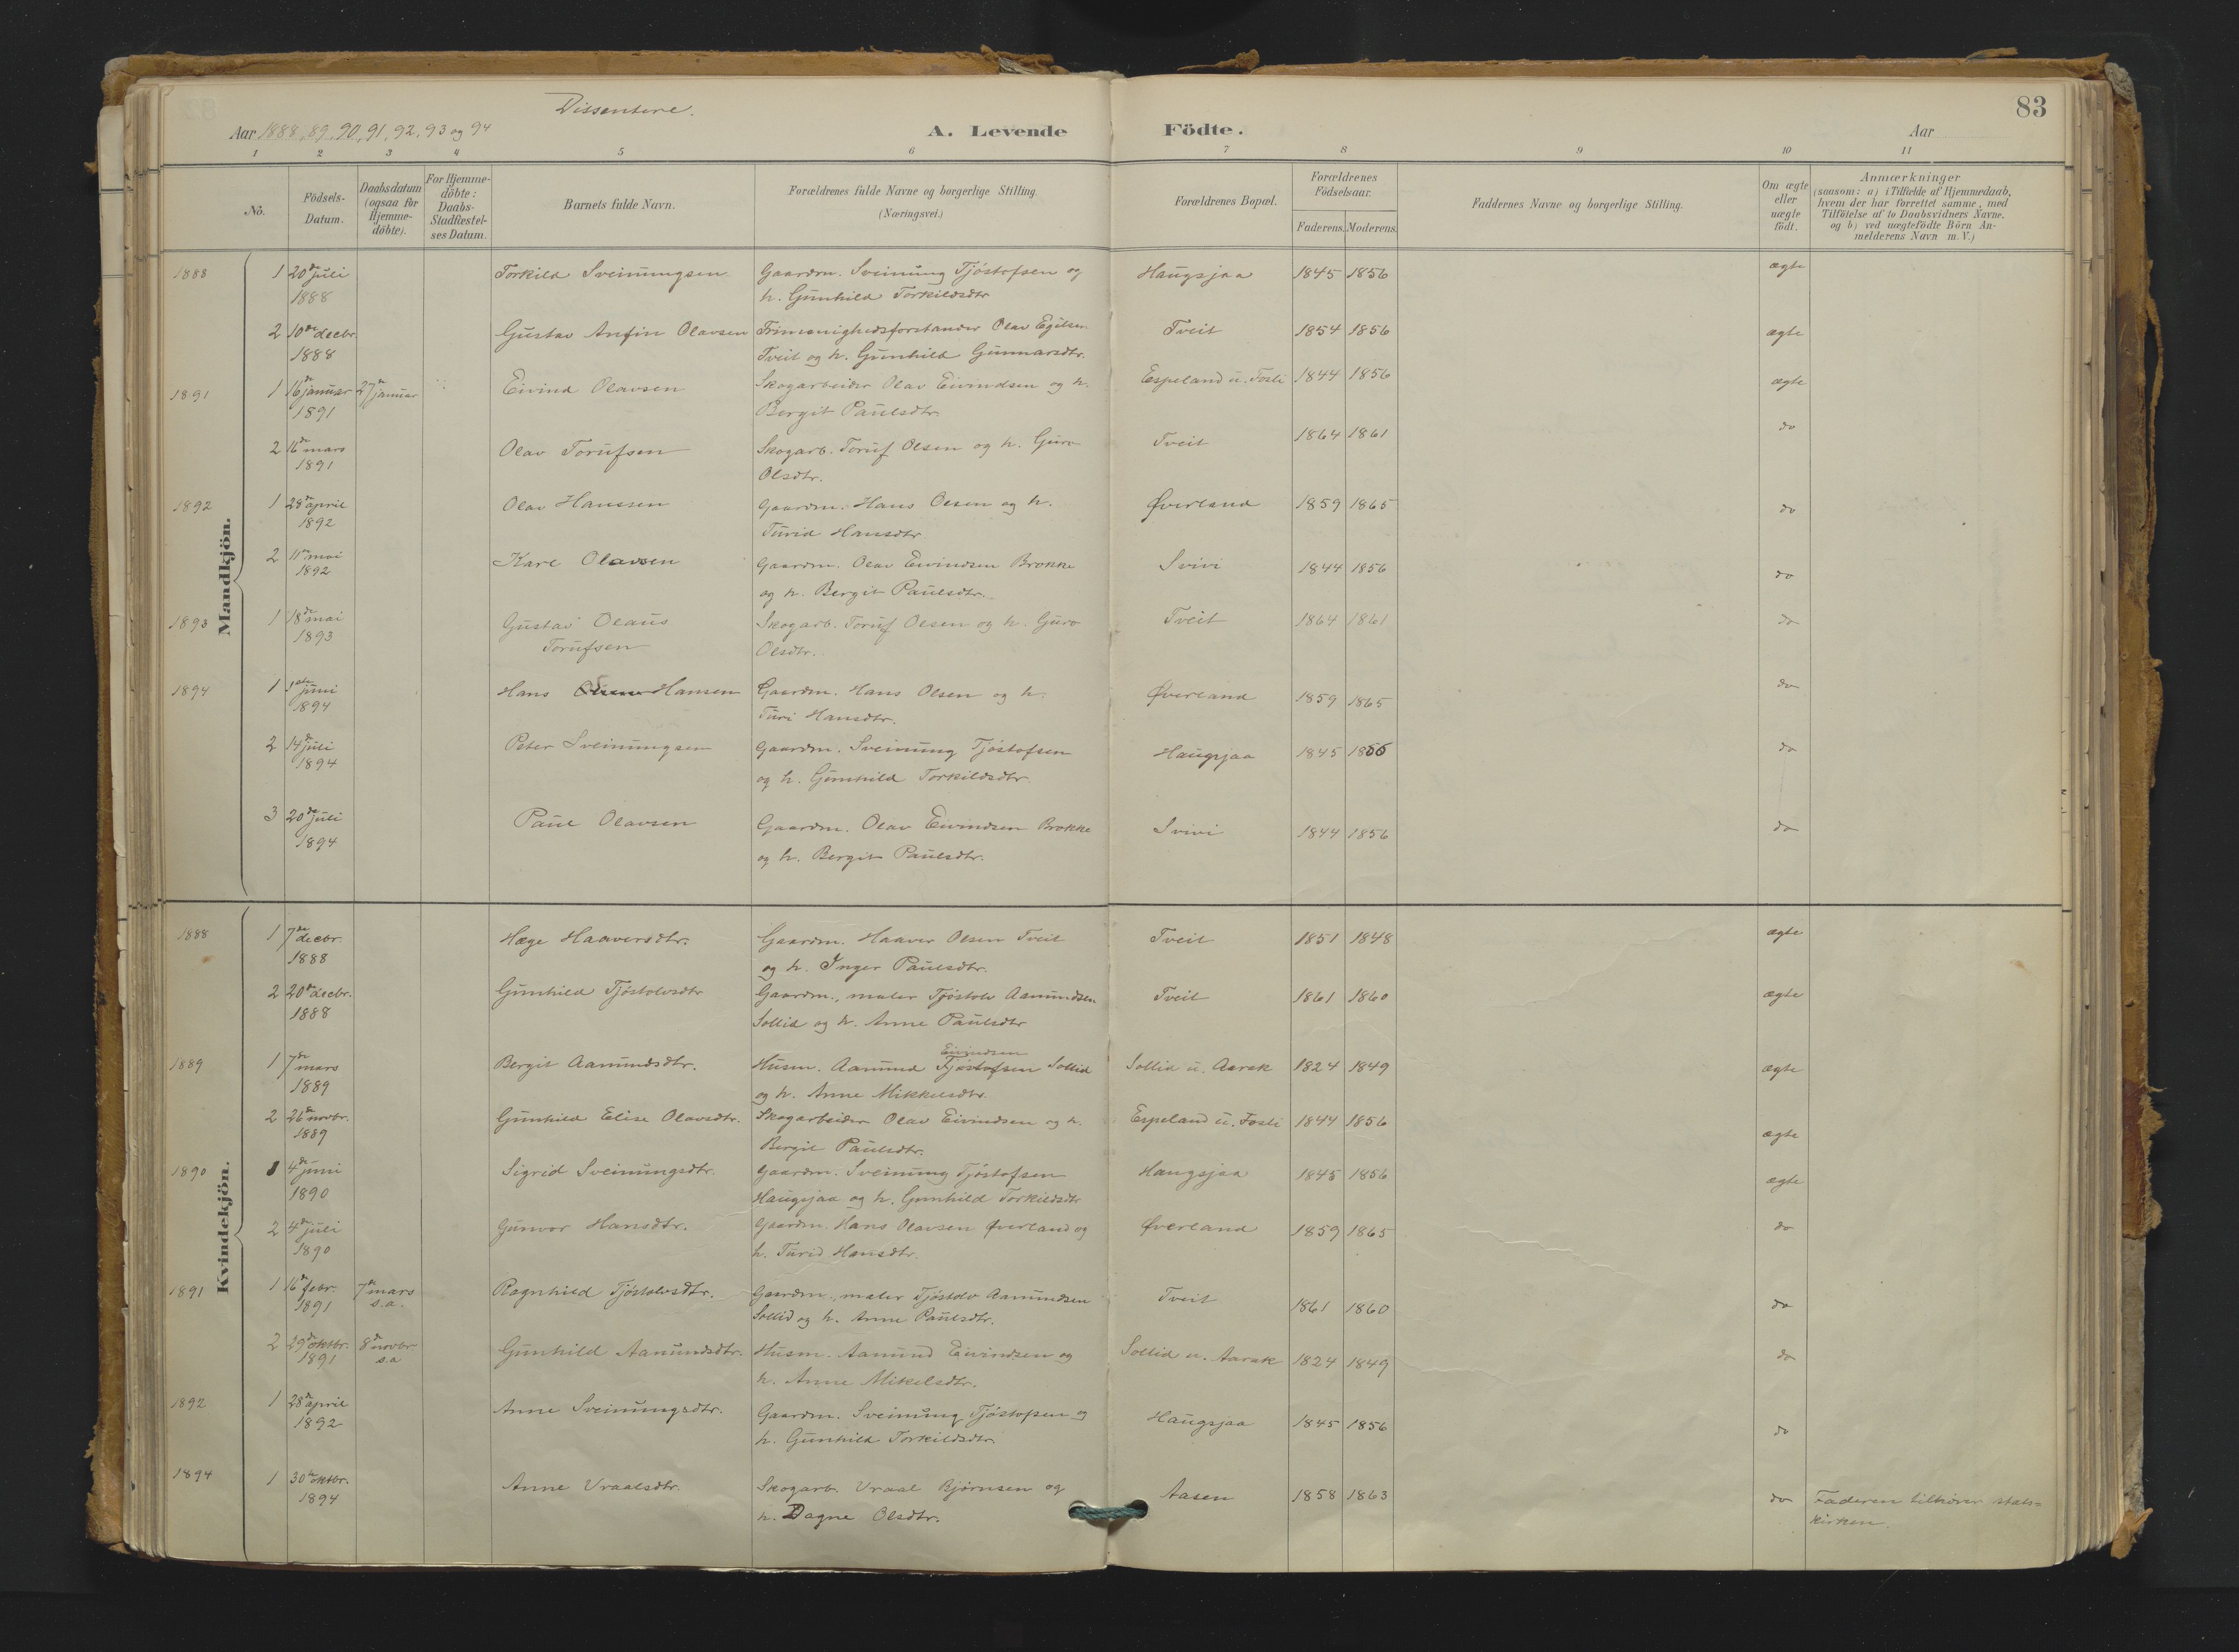 Dissentere.
83
Aar 1888, 89, 90, 91, 92, 93 og 94
A. Levende Födte.
Aar
1 2 3 4 5 6 7 8 9 10 11
No.
Födsels-
Datum.
Daabsdatum
(ogsaa för
Hjemme-
döbte).
For Hjemme-
döbte:
Daabs-
Stadfæstel-
ses Datum.
Barnets fulde Navn.
Forældrenes fulde Navne og borgerlige Stilling.
(Næringsvei.)
Forældrenes Bopæl.
Forældrenes
Födselsaar.
Faderens. Moderens.
Faddernes Navne og borgerlige Stilling.
Om ægte
eller
uægte
födt.
Anmærkninger
(saasom: a) i Tilfælde af Hjemmedaab,
hvem der har forrettet samme, med
Tilföielse af to Daabsvidners Navne.
og b) ved uægtefödte Börn An-
melderens Navn m. V.)
Mandkjön.
1888 1 20de juli Torkild Sveinungsen Gaardm. Sveinung Tjöstofsen og Haugsjaa 1845 1856 ægte
1888 h. Gunhild Torkildsdtr
2 10de decbr. Gustav Anfin Olavsen Frimenighedsforstander Olav Egilsen Tveit 1854 1856 ægte
1888 Tveit og h. Gunhild Gunnarsdtr.
1891 1 16de januar 27de januar Eivind Olavsen Skogarbeider Olav Eivindsen og h. Espeland u. Fosli 1844 1856 ægte
1891 Bergit Paulsdtr
2 16de mars Olav Torufsen Skogarb. Toruf Olsen og h. Guro Tveit 1864 1861 do
1891 Olsdtr.
1892 1 28de april Olav Hanssen Gaardm. Hans Olsen og h. Øverland 1859 1865 do
1892 Turid Hansdtr
2 11te mai Karl Olavsen Gaardm. Olav Eivindsen Brokke Svivi 1844 1856 do
1892 og h. Bergit Paulsdtr.
1893 1 18de mai Gustav Olaus Skogarb. Toruf Olsen og h. Guro Tveit 1864 1861 do
1893 Torufsen Olsdtr.
1894 1 1ste juni Hans Olsen Hansen Gaardm. Hans Olsen og h. Øverland 1859 1865 do
1894 Turi Hansdtr.
2 14de juli Peter Sveinungsen Gaardm. Sveinung Tjöstofsen Haugsjaa 1845 1856 do
1894 og h. Gunhild Torkildsdtr
3 20de juli Paul Olavsen Gaardm. Olav Eivindsen Brokke Svivi 1844 1856 do
1894 og h. Bergit Paulsdtr.
Kvindekjön.
1888 1 7de decbr. Hæge Haaversdtr. Gaardm. Haaver Olsen Tveit Tveit 1851 1848 ægte
1888 og h. Inger Paulsdtr.
2 20de decbr. Gunhild Tjöstolvsdtr Gaardm., maler Tjöstolv Aamundsen Tveit 1861 1860 ægte
1888 Sollid og h. Anne Paulsdtr
Eivindsen
1889 1 7de mars Bergit Aamundsdtr. Husm. Aamund Tjöstofsen Sollid Sollid u. Aarak 1824 1849 ægte
1889 og h. Anne Mikkelsdtr.
2 26de novbr. Gunhild Elise Olavsdtr. Skogarbeider Olav Eivindsen og h. Espeland u. Fosli 1844 1856 ægte
1889 Bergit Paulsdtr.
1890 1 4de juni Sigrid Sveinungsdtr. Gaardm. Sveinung Tjöstofsen Haugsjaa 1845 1856 ægte
1890 Haugsjaa og h. Gunhild Torkildsdtr
2 4de juli Gunvor Hansdtr. Gaardm. Hans Olavsen Øverland og Øverland 1859 1865 do
1890 h. Turid Hansdtr.
1891 1 16de febr. 7de mars Ragnhild Tjöstolvsdtr. Gaardm., maler Tjöstolv Aamundsen Tveit 1861 1860 do
1891 s.a. Sollid og h. Anne Paulsdtr.
2 29de oktbr. 8de novbr Gunhild Aamundsdtr. Husm. Aamund Eivindsen og Sollid u. Aarak 1824 1849 do
1891 s.a h. Anne Mikelsdtr.
1892 1 28de april Anne Sveinungsdtr. Gaardm. Sveinung Tjöstofsen og Haugsjaa 1845 1856 do
1892 h. Gunhild Torkildsdtr.
1894 1 30te oktbr. Anne Vraalsdtr. Skogarb. Vraal Bjørnsen og Aasen 1858 1863 do Faderen tilhörer stats-
1894 h. Dagne Olsdtr. kirken.